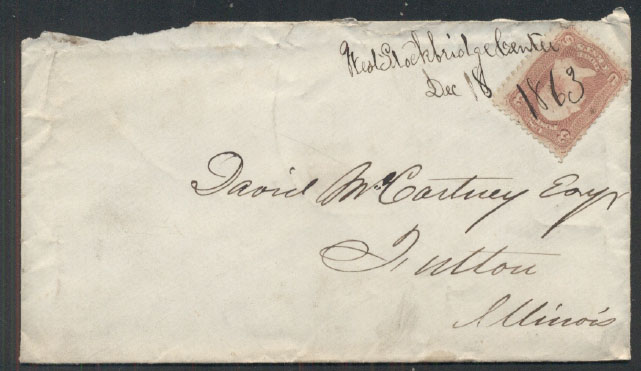 West Stockbridge Center
Dec 18 1863
David McCartney Esqr
Fulton
Illinois